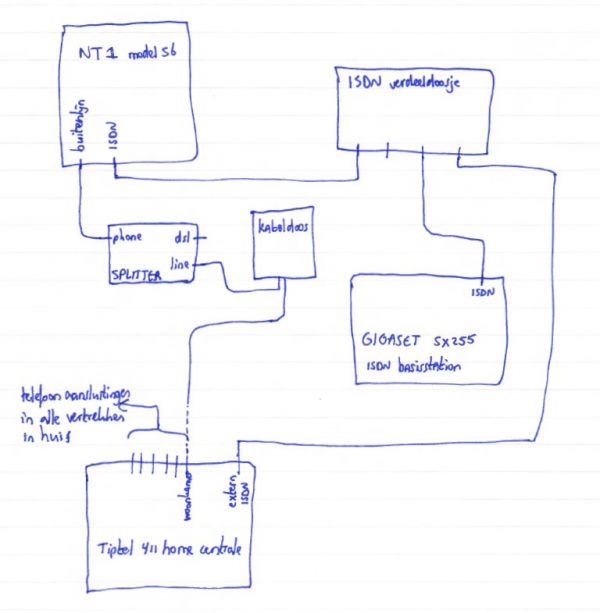 NT1 model S6
buitenlijn
ISDN
ISDN verdeeldoosje
phone
dsl
line
SPLITTER
kabeldoos
ISDN
GIGASET SX255
ISDN basisstation
telefoon aansluitingen
in alle vertrekken
in huis
woonkamer
extern
ISDN
Tiptel 411 home centrale